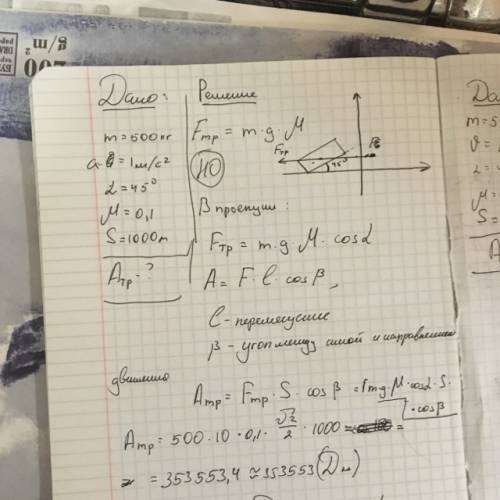 200 g/m²
Дано:
m = 500 кг
a = 1 м/с²
α = 45°
μ = 0,1
S = 1000 м
Aтр - ?
Решение
Fтр = m·g·μ
НО
Fтр
45°
В проекции:
Fтр = m·g·μ·cosα
A = F·l·cosβ,
l - перемещение
β - угол между силой и направлением
движения
Aтр = Fтр·S·cosβ = m·g·μ·cosα·S·
·cosβ
Aтр = 500·10·0,1·√2/2·1000 =
= 353553,4 ≈ 353553 (Дж)
Da
m = 5
S =
A